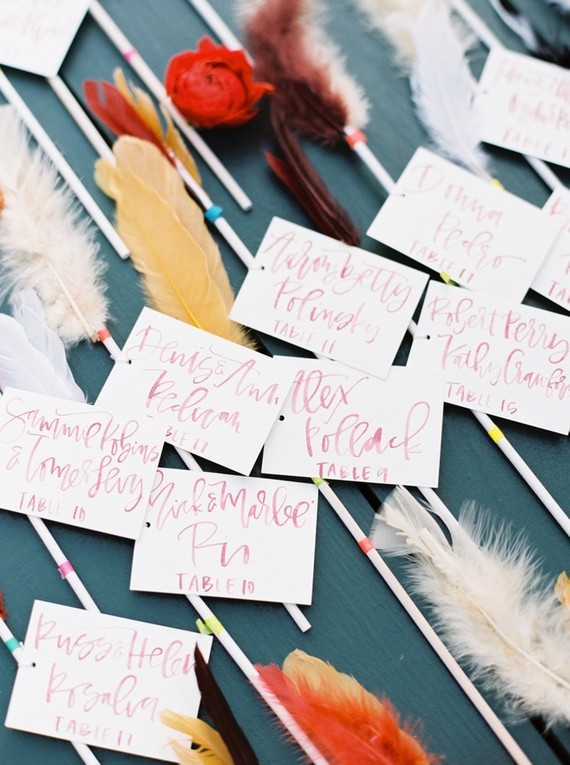 Donna
Pedro
TABLE 17
Aaron & Betty
Polinsky
TABLE 11
Robert Perry
Kathy Crawford
TABLE 15
Denis & Ann
Pelican
TABLE 17
Alex
Pollack
TABLE 9
Samme Robins
& Tomer Levy
TABLE 10
Nick & Marlee
Rio
TABLE 10
Russ & Helen
Rosalva
TABLE 17